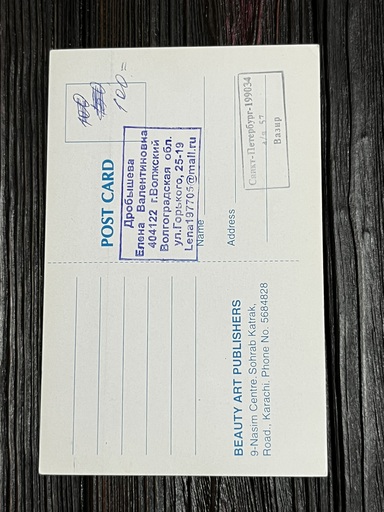 100=
POST CARD
Дробышева
Елена Валентиновна
404122 г.Волжский
Волгоградская обл.
ул.Горького, 25-19
Lena197705@mail.ru
Name
Address
Санкт-Петербург-199034
а/я 57
Вазир
BEAUTY ART PUBLISHERS
9-Nasim Centre. Sohrab Katrak,
Road., Karachi. Phone No. 5684828